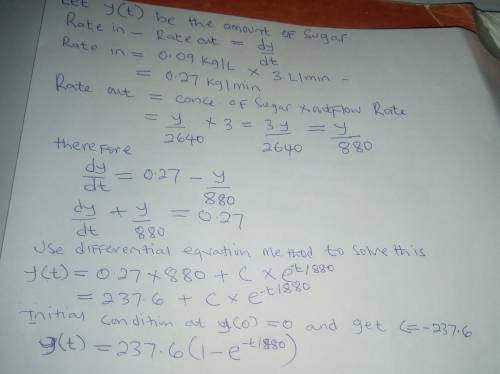 Let y(t) be the amount of Sugar
Rate in - Rate out = dy/dt
Rate in = 0.09 kg/L × 3 L/min -
= 0.27 kg/min
Rate out = conc of Sugar × outflow Rate
= y/2640 × 3 = 3y/2640 = y/880
therefore
dy/dt = 0.27 - y/880
dy/dt + y/880 = 0.27
Use differential equation method to solve this
y(t) = 0.27 × 880 + C × e^-t/880
= 237.6 + C × e^-t/880
Initial condition at y(0) = 0 and get C = -237.6
y(t) = 237.6 (1 - e^-t/880)